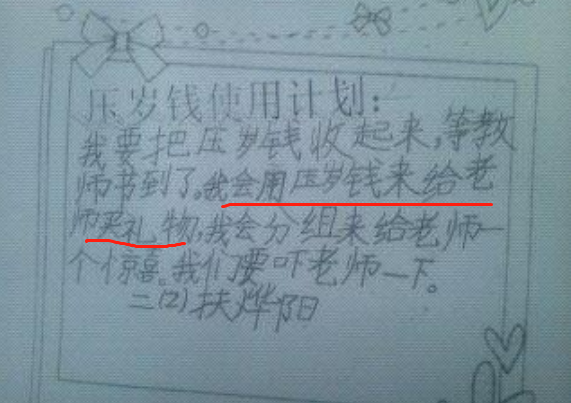 压岁钱使用计划：
我要把压岁钱收起来，等教
师书到了。我会用压岁钱来给老
师买礼物，我会分组来给老师一
个惊喜。我们要吓老师一下。
二(2)扶烨阳